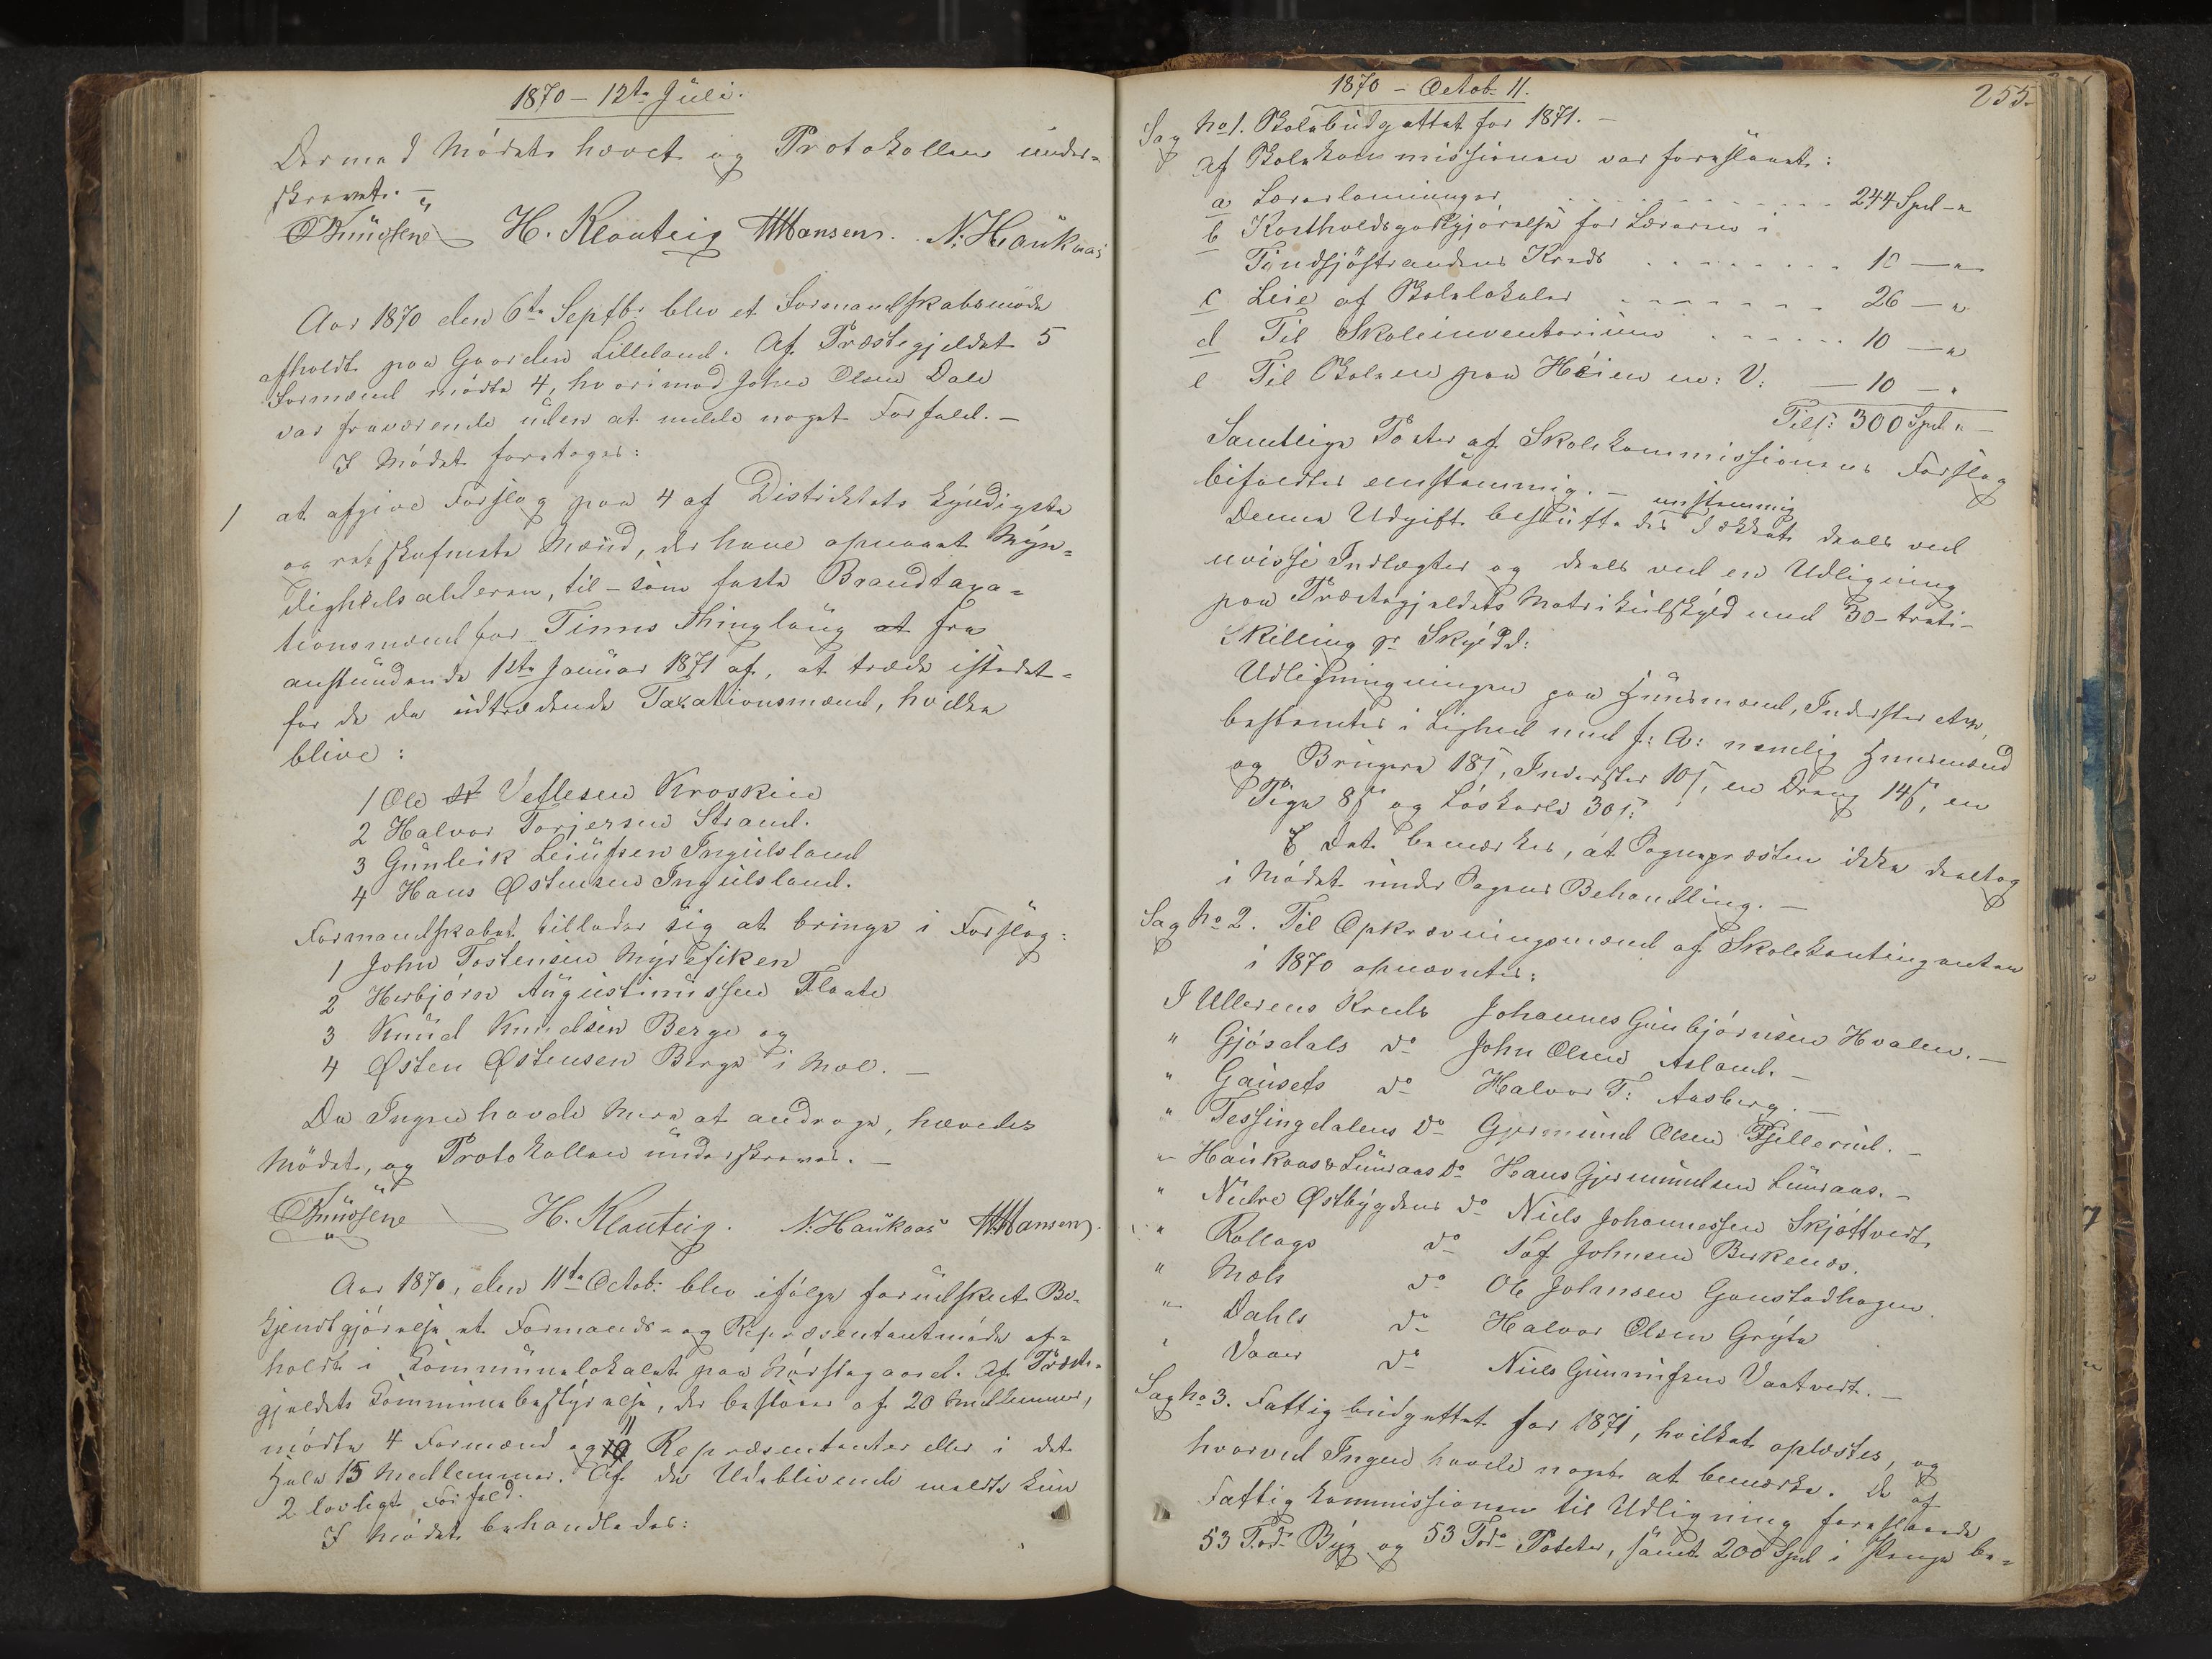 1870 - 12te Juli.
Dermed Mödet hævet og Protokollen under=
skrevet. -
OKnudsen H. Klonteig HHansen. N. Haukaas
Aar 1870 den 6te Septbr blev et Formandskabsmöde
afholdt paa Gaarden Lilleland. Af Præstegjeldets 5
Formænd mödte 4, hvorimod John Olsen Dale
var fraværende uden at melde noget Forfald. -
I Mödet foretoges:
1 at afgive Forslag paa 4 af Distriktets kyndigste
og retskafneste Mænd, der have opnaaet Myn=
dighedsalderen, til - som faste Brandtaxa=
tionsmænd for Tinns Thinglaug at fra
anstundende 1ste Januar 1871 af, at træde istedet=
for de da udtrædende Taxationsmænd, hvilke
blive:
1 Ole St Vetlesen Kroskie
2 Halvor Torjersen Strand.
3 Gunleik Leiufsen Ingulsland
4 Hans Østensen Ingulsland.
Formandskabet tillader sig at bringe i Forslag:
1 John Tostensen Myrefiken
2 Herbjörn Augustinussen Flaate
3 Knud Knudsen Berge og
4 Østen Østensen Berge i Mæl. -
Da Ingen havde Mere at andrage, hævedes
Mödet, og Protokollen underskreves. -
OKnudsen H. Klonteig. N. Haukaas HHansen.
Aar 1870, den 11te Octob: blev ifölge forudskeet Be=
kjendtgjörelse et Formands- og Repræsentantmöde af=
holdt i Kommunelokalet paa Mårstagaard. Af Præste=
gjeldets Kommunebestyrelse, der bestaaer af 20 Medlemmer,
mödte 4 Formænd og 10 11 Repræsentanter eller i det
Hele 15 Medlemmer. Af de Udeblivende meldte kun
2 lovligt Forfald.
I Mödet behandledes:
1870 - Octob. 11.
255.
Sag No 1. Skolebudgettet for 1871. -
Af Skolekommissionen var foreslaaet:
a Lærerlønninger 244 Spd - "
b Kostholdsgodtgjörelse for Læreren i
Tindsjöstrandens Kreds 10 - "
c Leie af Skolelokaler 26 - "
d Til Skoleinventarium 10 - "
e Til Skolen paa Höien m: V: - 10 - "
Tils: 300 Spd " -
Samtlige Poster af Skolekommissionens Forslag
bifaldtes eenstemmig. -
Denne Udgift besluttedes eenstemmig dækket deels ved
uvisse Indtægter og deels ved en Udligning
paa Præstegjeldets Matrikulskyld med 30 - treti -
Skilling pr Skyldd:
Udligningningen paa Huusmænd, Inderster etc,
bestemtes i Lighed med f: A: nemlig Huusmænd
og Brugere 18 s, Inderster 10 s, en Dreng 14 s, en
Pige 8 s og Löskarle 30 s.
Det bemærkes, at Sognepræsten ikke deeltog
i Mödet under Sagens Behandling. -
Sag No 2. Til Opkrævningsmænd af Skolekontingenten
i 1870 opnævntes:
I Ullerens Kreds Johannes Gunbjörnsen Hvalen. -
" Gjösdals do John Olsen Asland. -
" Gausets do Halvor T: Aasberg. -
" Tessungdalens do Gjermund Olsen Fjellerud. -
" Haukaas & Luuraas do Hans Gjermundsen Luuraas. -
" Nedre Østbygdens do Niels Johannessen Skjöttvedt
" Rollags do Tof Johnsen Birkenæs.
" Mæls do Ole Johnsen Gonstadhagen.
" Dahls do Halvor Olsen Gryte
" Vaaer do Niels Gunnufsen Vaatvedt. -
Sag No 3. Fattigbudgettet for 1871, hvilket oplæstes, og
hvorved Ingen havde noget at bemærke. De af
Fattigkommissionen til Udligning foreslaaede
53 Tdr Byg og 53 Tdr Poteter, samt 200 Spd i Penge be=